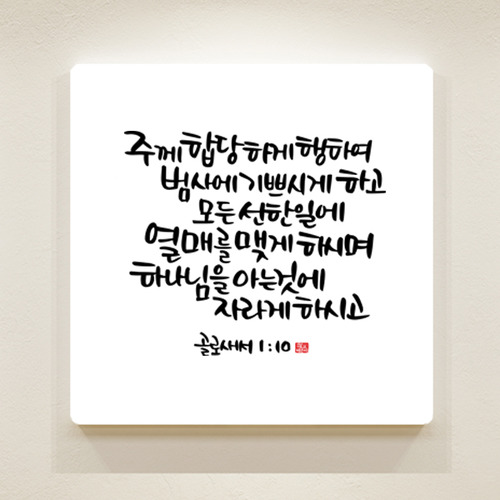 주께 합당하게 행하여
범사에 기쁘시게 하고
모든 선한일에
열매를 맺게 하시며
하나님을 아는것에
자라게 하시고
골로새서 1:10